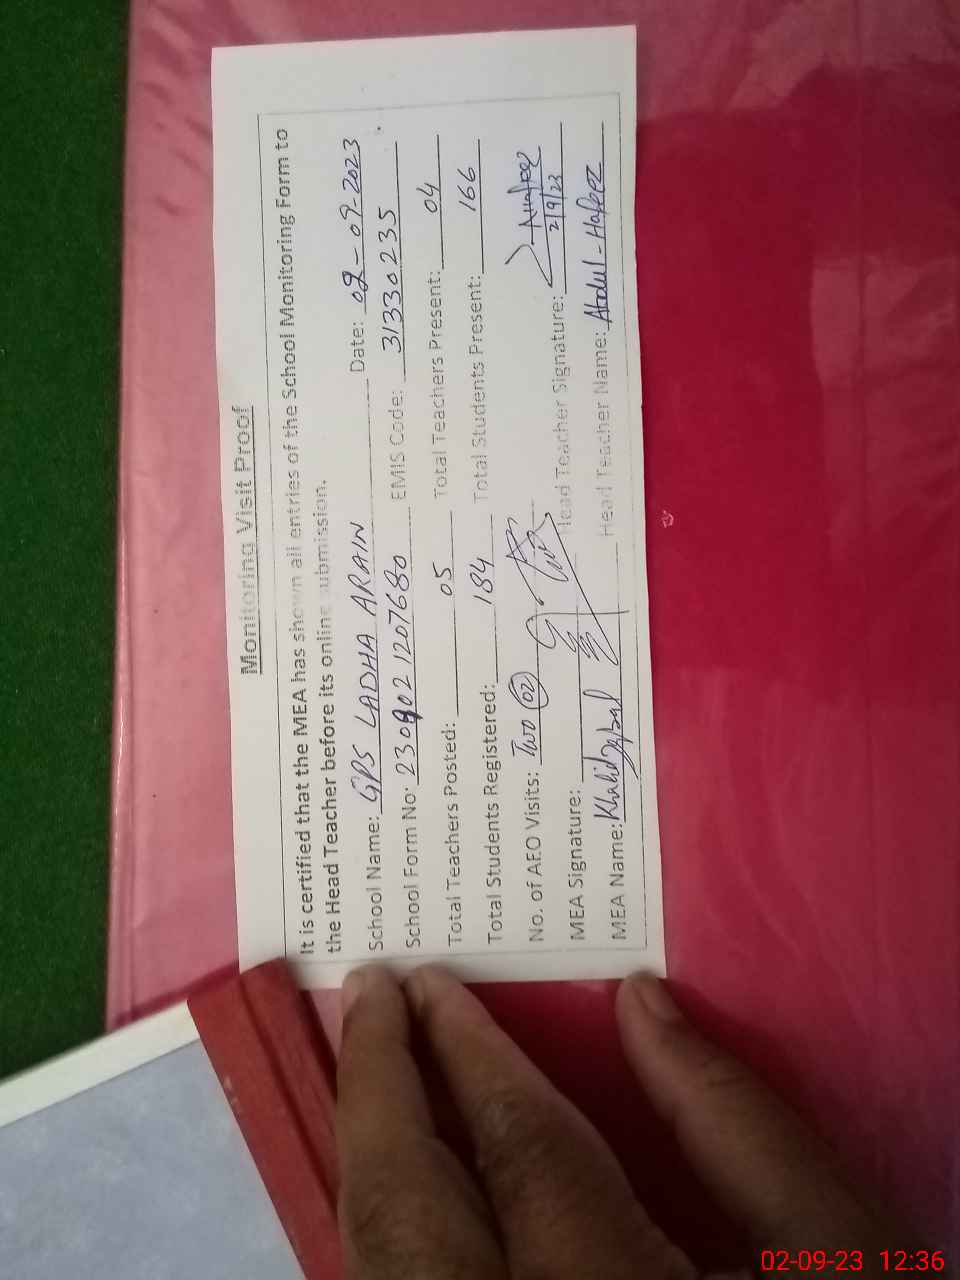 Monitoring Visit Proof
It is certified that the MEA has shown all entries of the School Monitoring Form to
the Head Teacher before its online submission.
School Name: GPS LADHA ARAIN Date: 02-09-2023
School Form No: 230902 1207680 EMIS Code: 31330235
Total Teachers Posted: 05 Total Teachers Present: 04
Total Students Registered: 184 Total Students Present: 166
No. of AEO Visits: Two (02)
MEA Signature: Head Teacher Signature: 2/9/23
MEA Name: Khalid Iqbal Head Teacher Name: Abdul-Hafeez
02-09-23 12:36